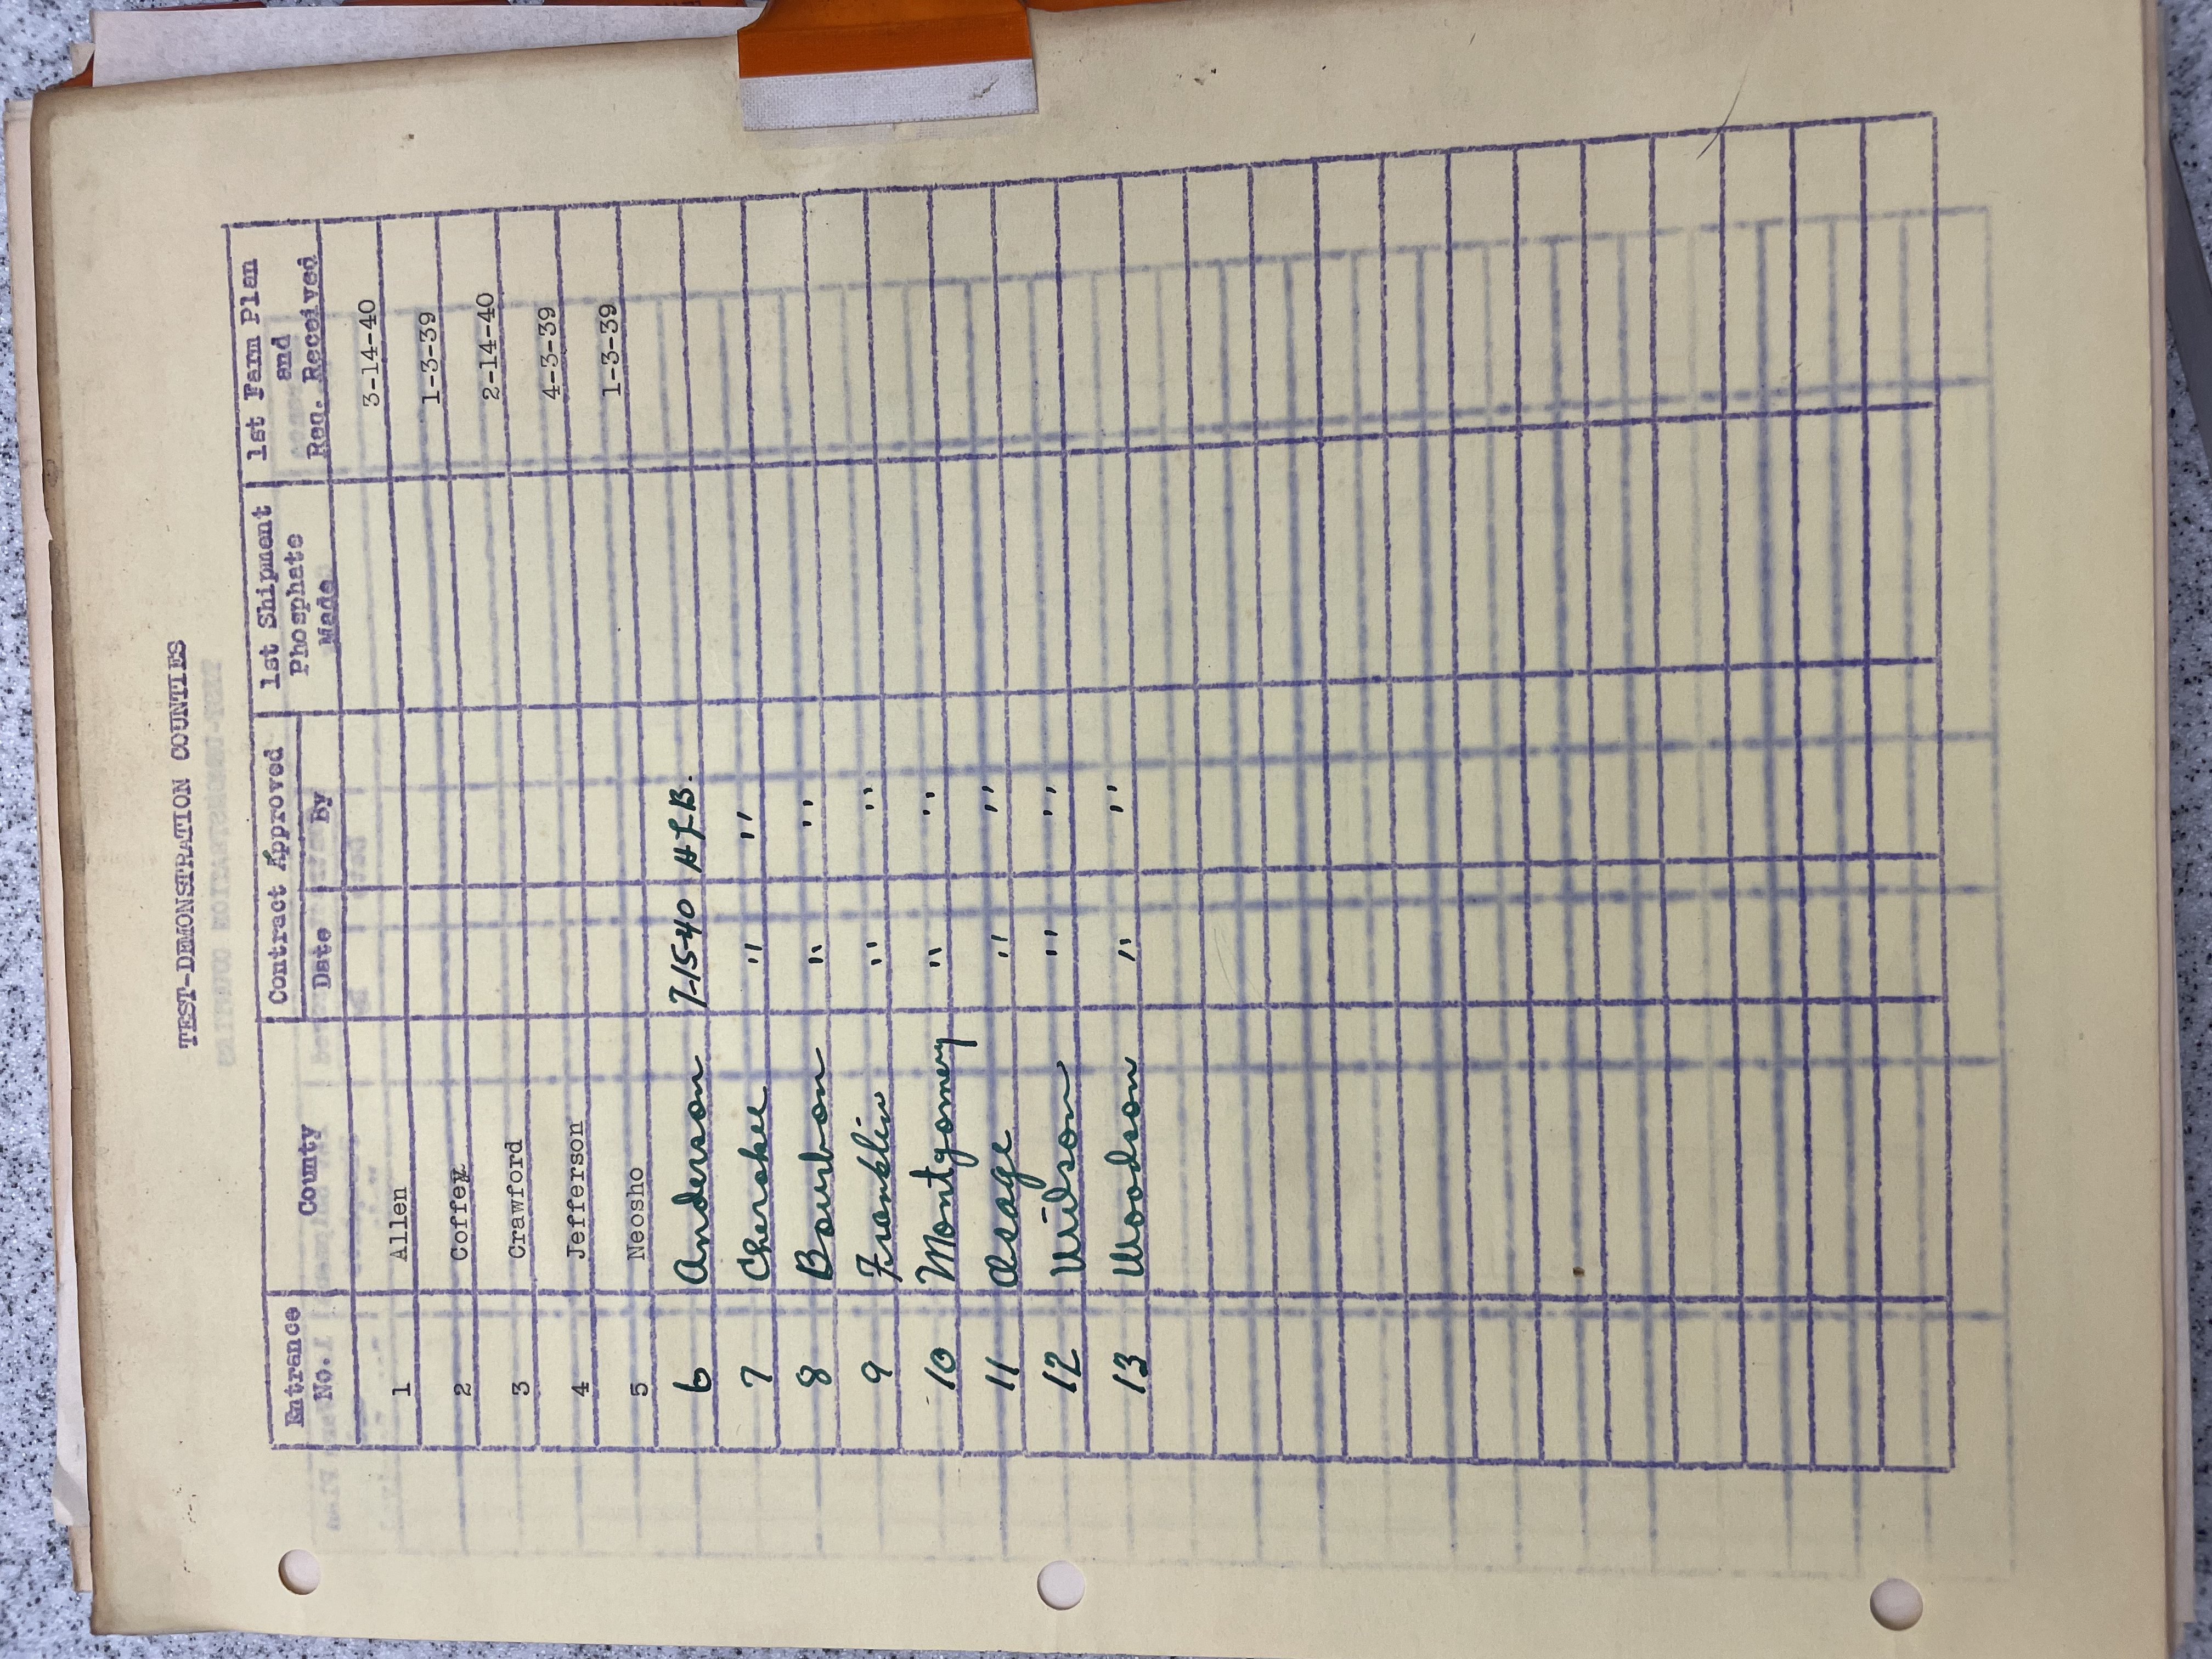 TEST-DEMONSTRATION COUNTIES
Entrance No. County Contract Approved Date By 1st Shipment Phosphate Made 1st Farm Plan and Req. Received
1 Allen 3-14-40
2 Coffey 1-3-39
3 Crawford 2-14-40
4 Jefferson 4-3-39
5 Neosho 1-3-39
6 Anderson 7-15-40 H L B.
7 Cherokee " "
8 Bourbon " "
9 Franklin " "
10 Montgomery " "
11 Osage " "
12 Wilson " "
13 Woodson " "